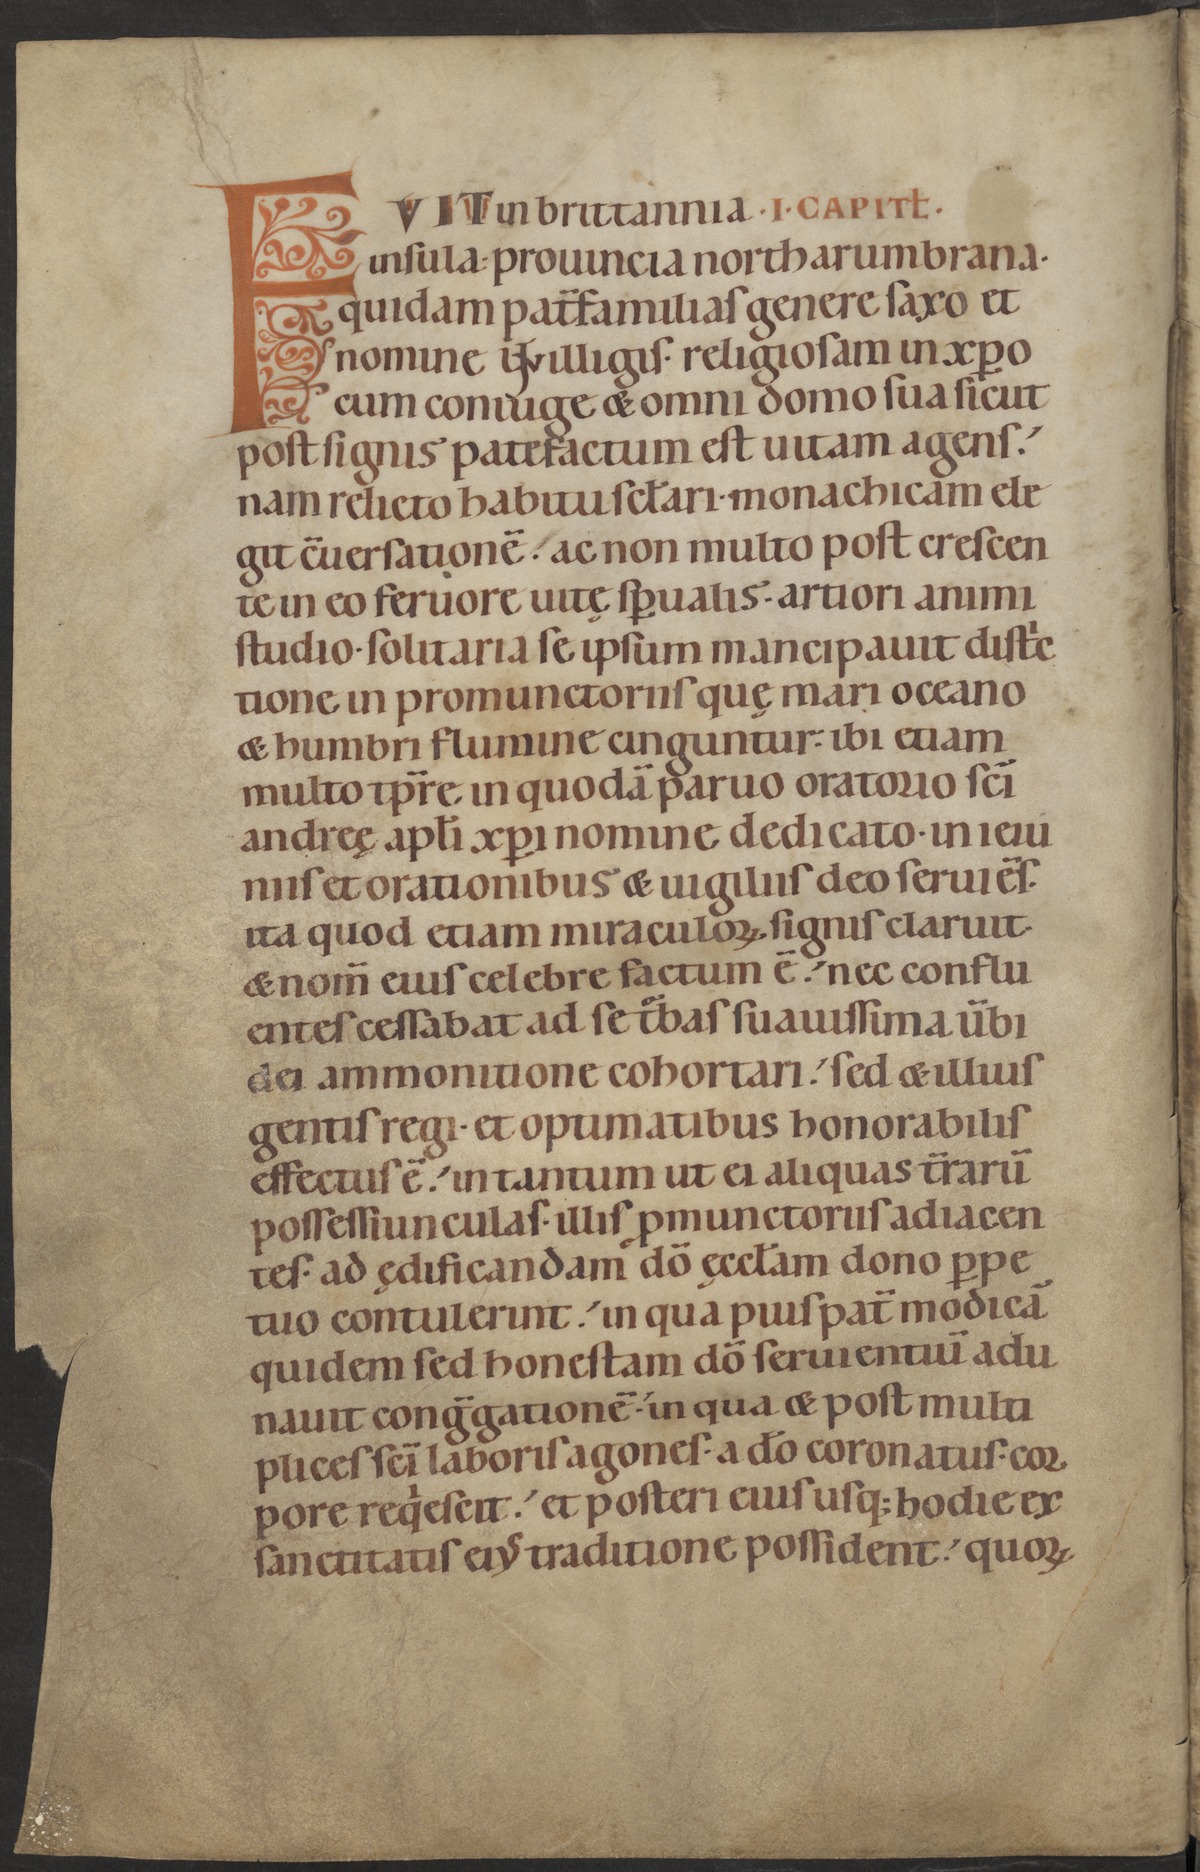 FVIT in brittannia ·I· CAPITŁ·
insula· prouincia northarumbrana·
quidam pat̄familias genere saxo et
nomine uuilligis· religiosam in xp̄o
cum coniuge & omni domo sua sicut
post signis patefactum est uitam agens!
nam relicto habitu scłari· monachicam ele
git c̄uersationē! ac non multo post crescen
te in eo feruore uitę sp̄ualis· artiori animi
studio· solitaria se ipsum mancipauit distͥc
tione in promunctoriis quę mari oceano
& humbri flumine cinguntur· ibi etiam
multo tp̄re in quodā paruo oratorio sc̄i
andreę apłi xp̄i nomine dedicato· in ieiu
niis et orationibus & uigiliis deo seruiēs·
ita quod etiam miraculoꝝ signis claruit·
& nom̄ eius celebre factum ē! nec conflu
entes cessabat ad se tͦbas suauissima ūbi
dei ammonitione cohortari! sed & illius
gentis regi· et optimatibus honorabilis
effectus ē! in tantum ut ei aliquas t̄rarū
possessiunculas· illis ꝓmunctoriis adiacen
tes· ad ędificandam dō ęccłam dono ꝑpe
tuo contulerint! in qua pius pat̄ modicā
quidem sed honestam dō seruientiū adu
nauit conḡgationē· in qua & post multi
plices sc̄i laboris agones· a do̅ coronatus· cor
pore reqͥescit! et posteri eius usq; hodie ex
sanctitatis eiꝰ traditione possident! quoꝝ